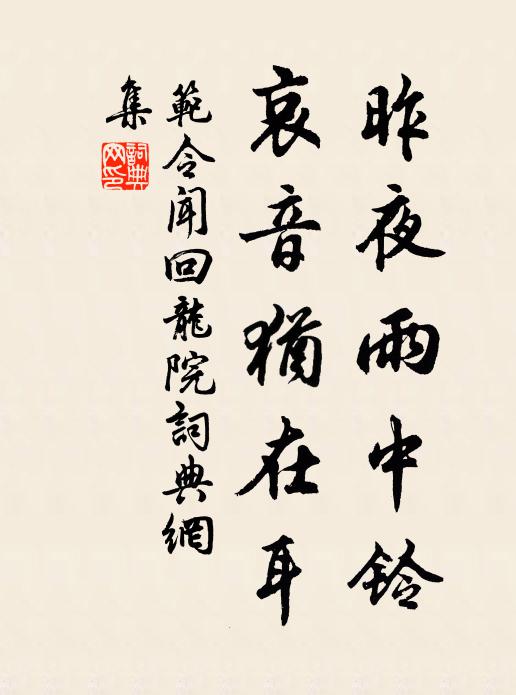 昨夜雨中鈴
哀音猶在耳
範令聞回龍院詞典網
集
詞典網印